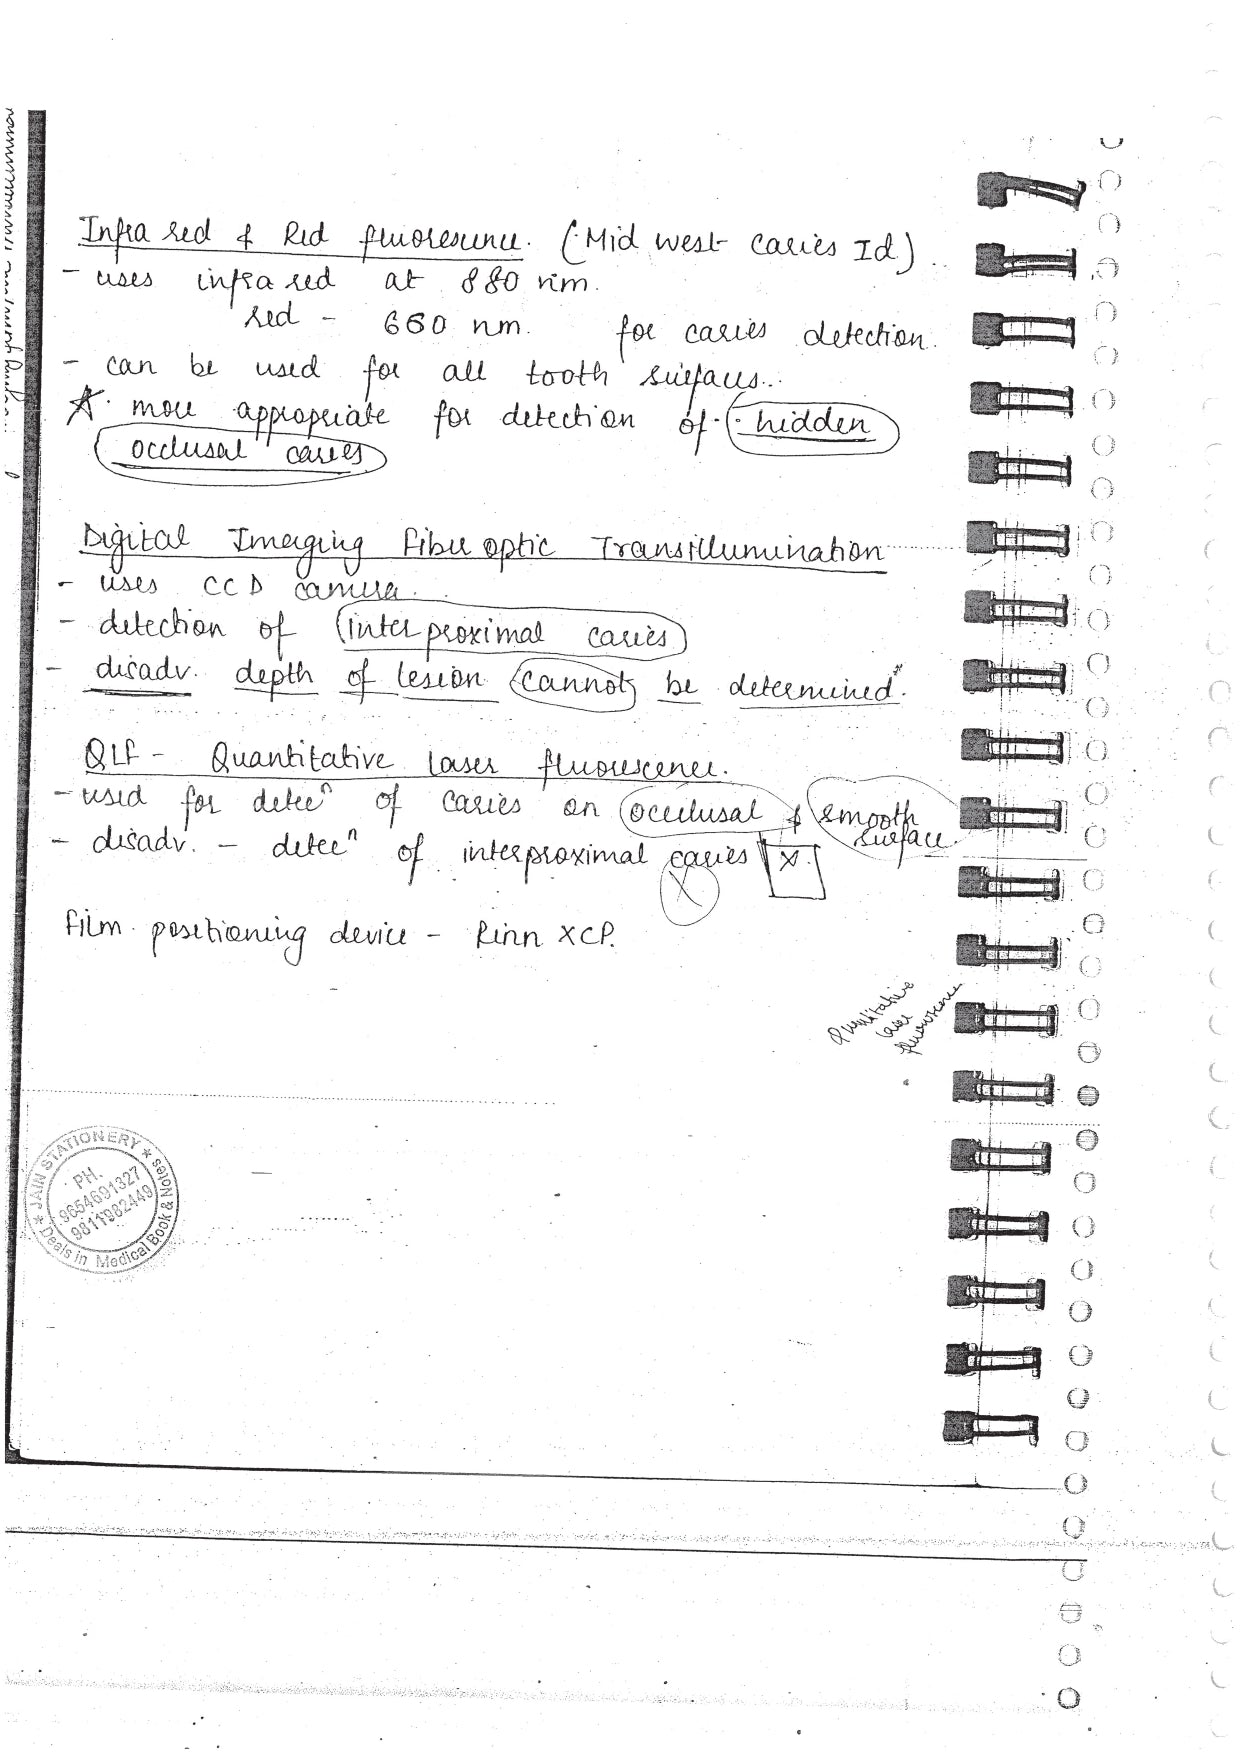 Infra red & Red fluorescence. (Mid west Caries Id)
- uses infra red at 880 nm.
red - 660 nm. for caries detection.
- can be used for all tooth surfaces.
☆ more appropriate for detection of hidden
occlusal caries
Digital Imaging Fiber optic Transillumination
- uses CCD camera.
- detection of interproximal caries
- disadv. depth of lesion cannot be determined*.
QLF - Quantitative laser fluorescence.
- used for detecⁿ of caries on occlusal & smooth
surface.
- disadv. - detecⁿ of interproximal caries X.
X
Film positioning device - Rinn XCP.
Quantitative
laser
fluorescence
★ JAIN STATIONERY ★
PH.
9654691327
9811982449
Deals in Medical Book & Notes